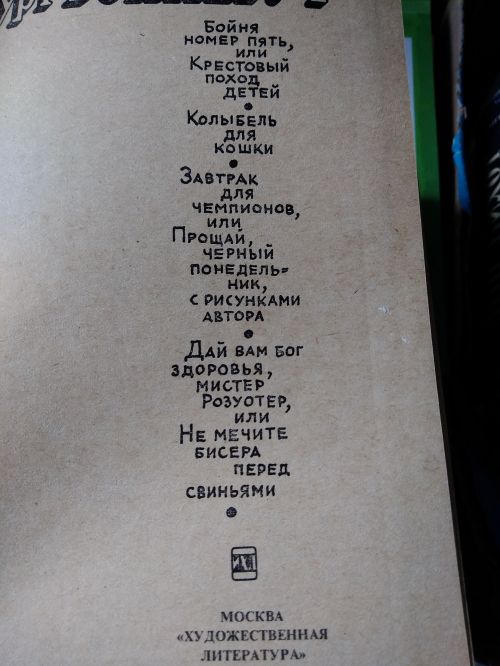 Бойня
номер пять,
или
Крестовый
поход
детей
•
Колыбель
для
кошки
•
Завтрак
для
чемпионов,
или
Прощай,
черный
понедель=
ник,
с рисунками
автора
•
Дай вам бог
здоровья,
мистер
Розуотер,
или
Не мечите
бисера
перед
свиньями
•
МОСКВА
«ХУДОЖЕСТВЕННАЯ
ЛИТЕРАТУРА»